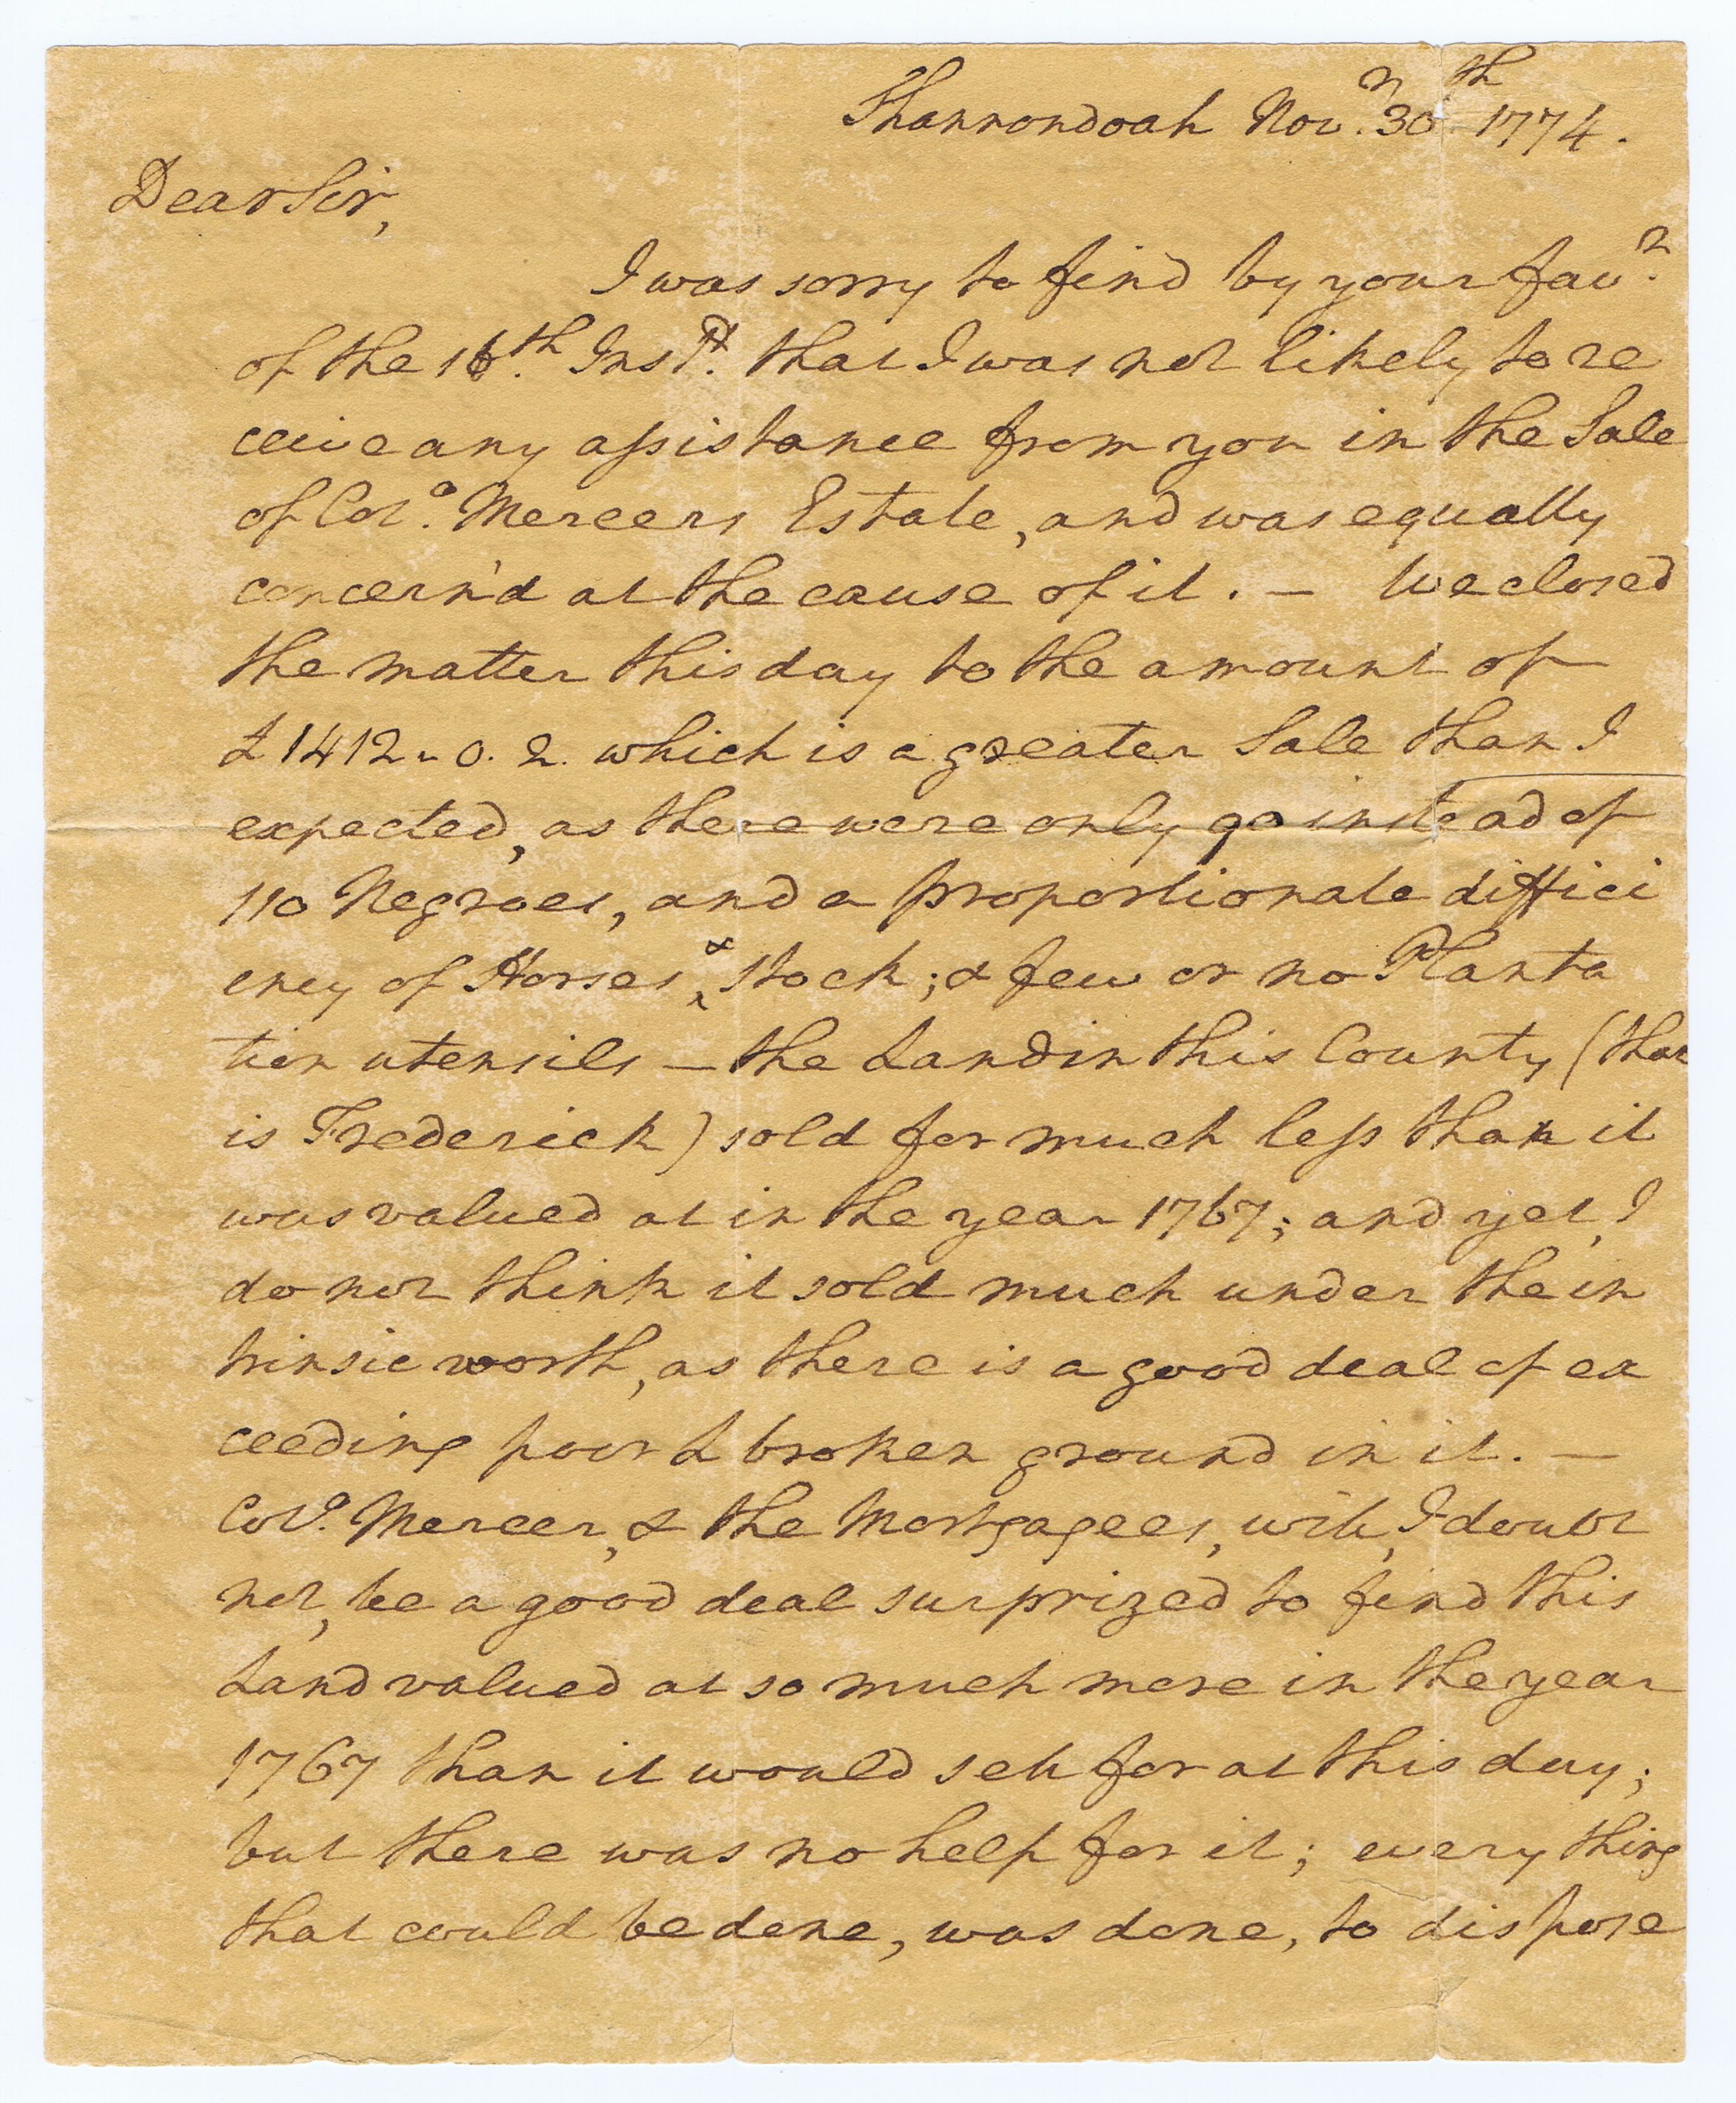 Shannondoah Nov.r 30th 1774.
Dear Sir,
I was sorry to find by your fav.r
of the 16.th Inst. that I was not likely to re
ceive any assistance from you in the Sale
of Col.o Mercers Estate, and was equally
concern'd at the cause of it. — We closed
the matter this day to the amount of
£1412 . 0. 2. which is a greater Sale than I
expected, as there were only 90 instead of
110 Negroes, and a proportionate diffici
ency of Horses, & Stock; & few or no Planta
tion utensils — the Land in this County (that
is Frederick) sold for much less than it
was valued at in the year 1767; and yet, I
do not think it sold much under the in
trinsic worth, as there is a good deal of ex
ceeding poor & broken ground in it. —
Col.o Mercer, & the Mortgagees, will, I doubt
not, be a good deal surprized to find this
Land valued at so much more in the year
1767 than it would sell for at this day;
but there was no help for it; every thing
that could be done, was done, to dispose